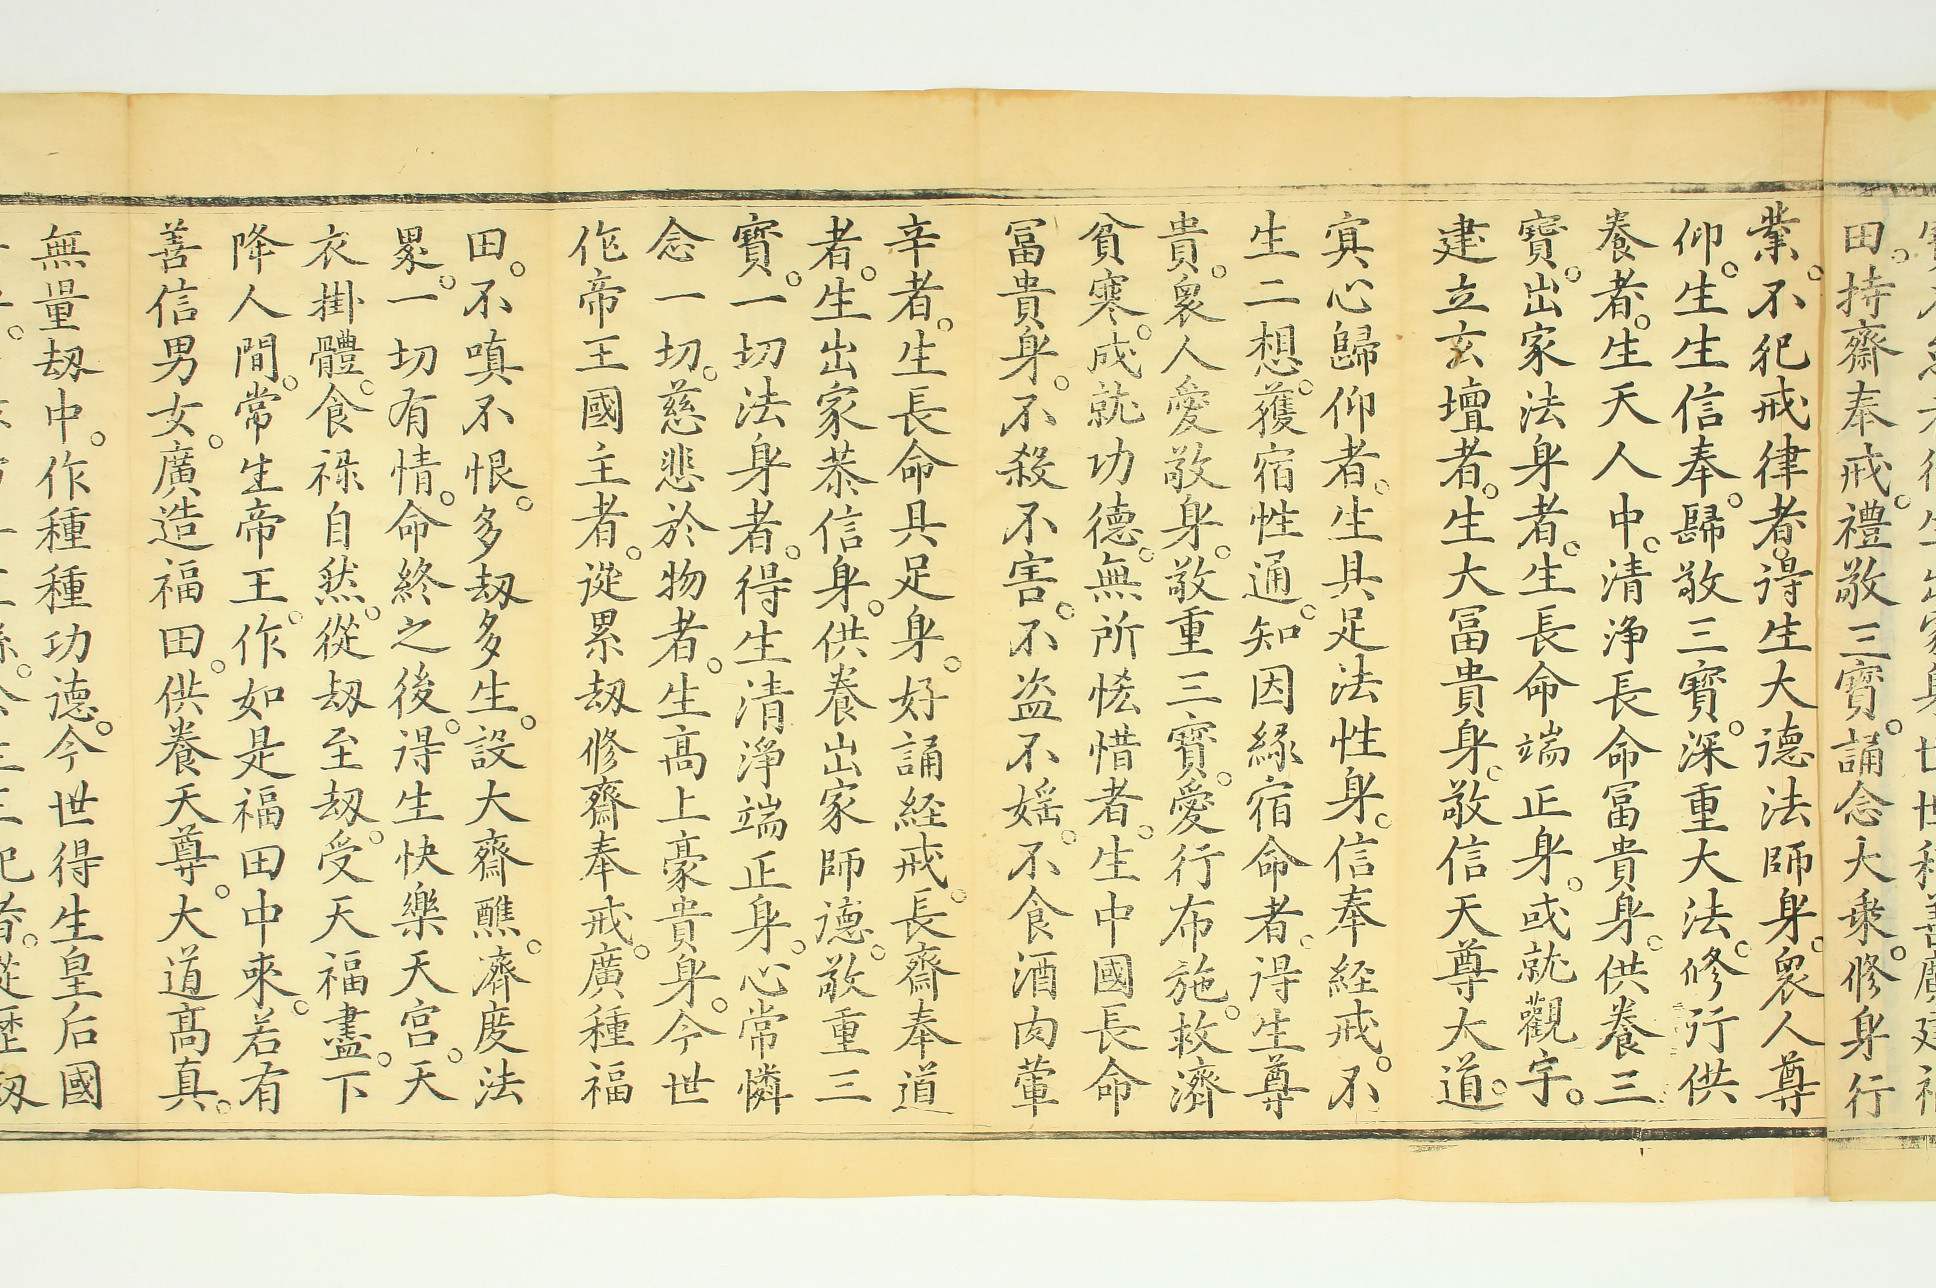 田。持齋奉戒。禮敬三寶。誦念大衆。修身行
業。不犯戒律者。淂生大德法師身。衆人尊
仰。生生信奉。歸敬三寶。深重大法。修行供
養者。生天人中。清淨長命冨貴身。供養三
寶。出家法身者。生長命端正身。或就觀宇。
建立玄壇者。生大冨貴身。敬信天尊大道。
寘心歸仰者。生具足法性身。信奉経戒。不
生二想。獲宿性通。知因緣宿命者。淂生尊
貴。衆人愛敬身。敬重三寶。愛行布施。救濟
貧寒。成就功德。無所恡惜者。生中國長命
冨貴身。不殺不害。不盗不婬。不食酒肉葷
辛者。生長命具足身。好誦経戒。長齋奉道
者。生出家恭信身。供養出家師德。敬重三
寶。一切法身者。得生清淨端正身。心常憐
念一切。慈悲於物者。生髙上豪貴身。今世
作帝王國主者。從累刼修齋奉戒。廣種福
田。不嗔不恨。多刼多生。設大齋醮。濟度法
界。一切有情。命終之後。淂生快樂天宫。天
衣掛體。食禄自然。從刼至刼。受天福盡。下
降人間。常生帝王。作如是福田中來。若有
善信男女。廣造福田。供養天尊。大道髙真。
無量刼中。作種種功德。今世得生皇后國